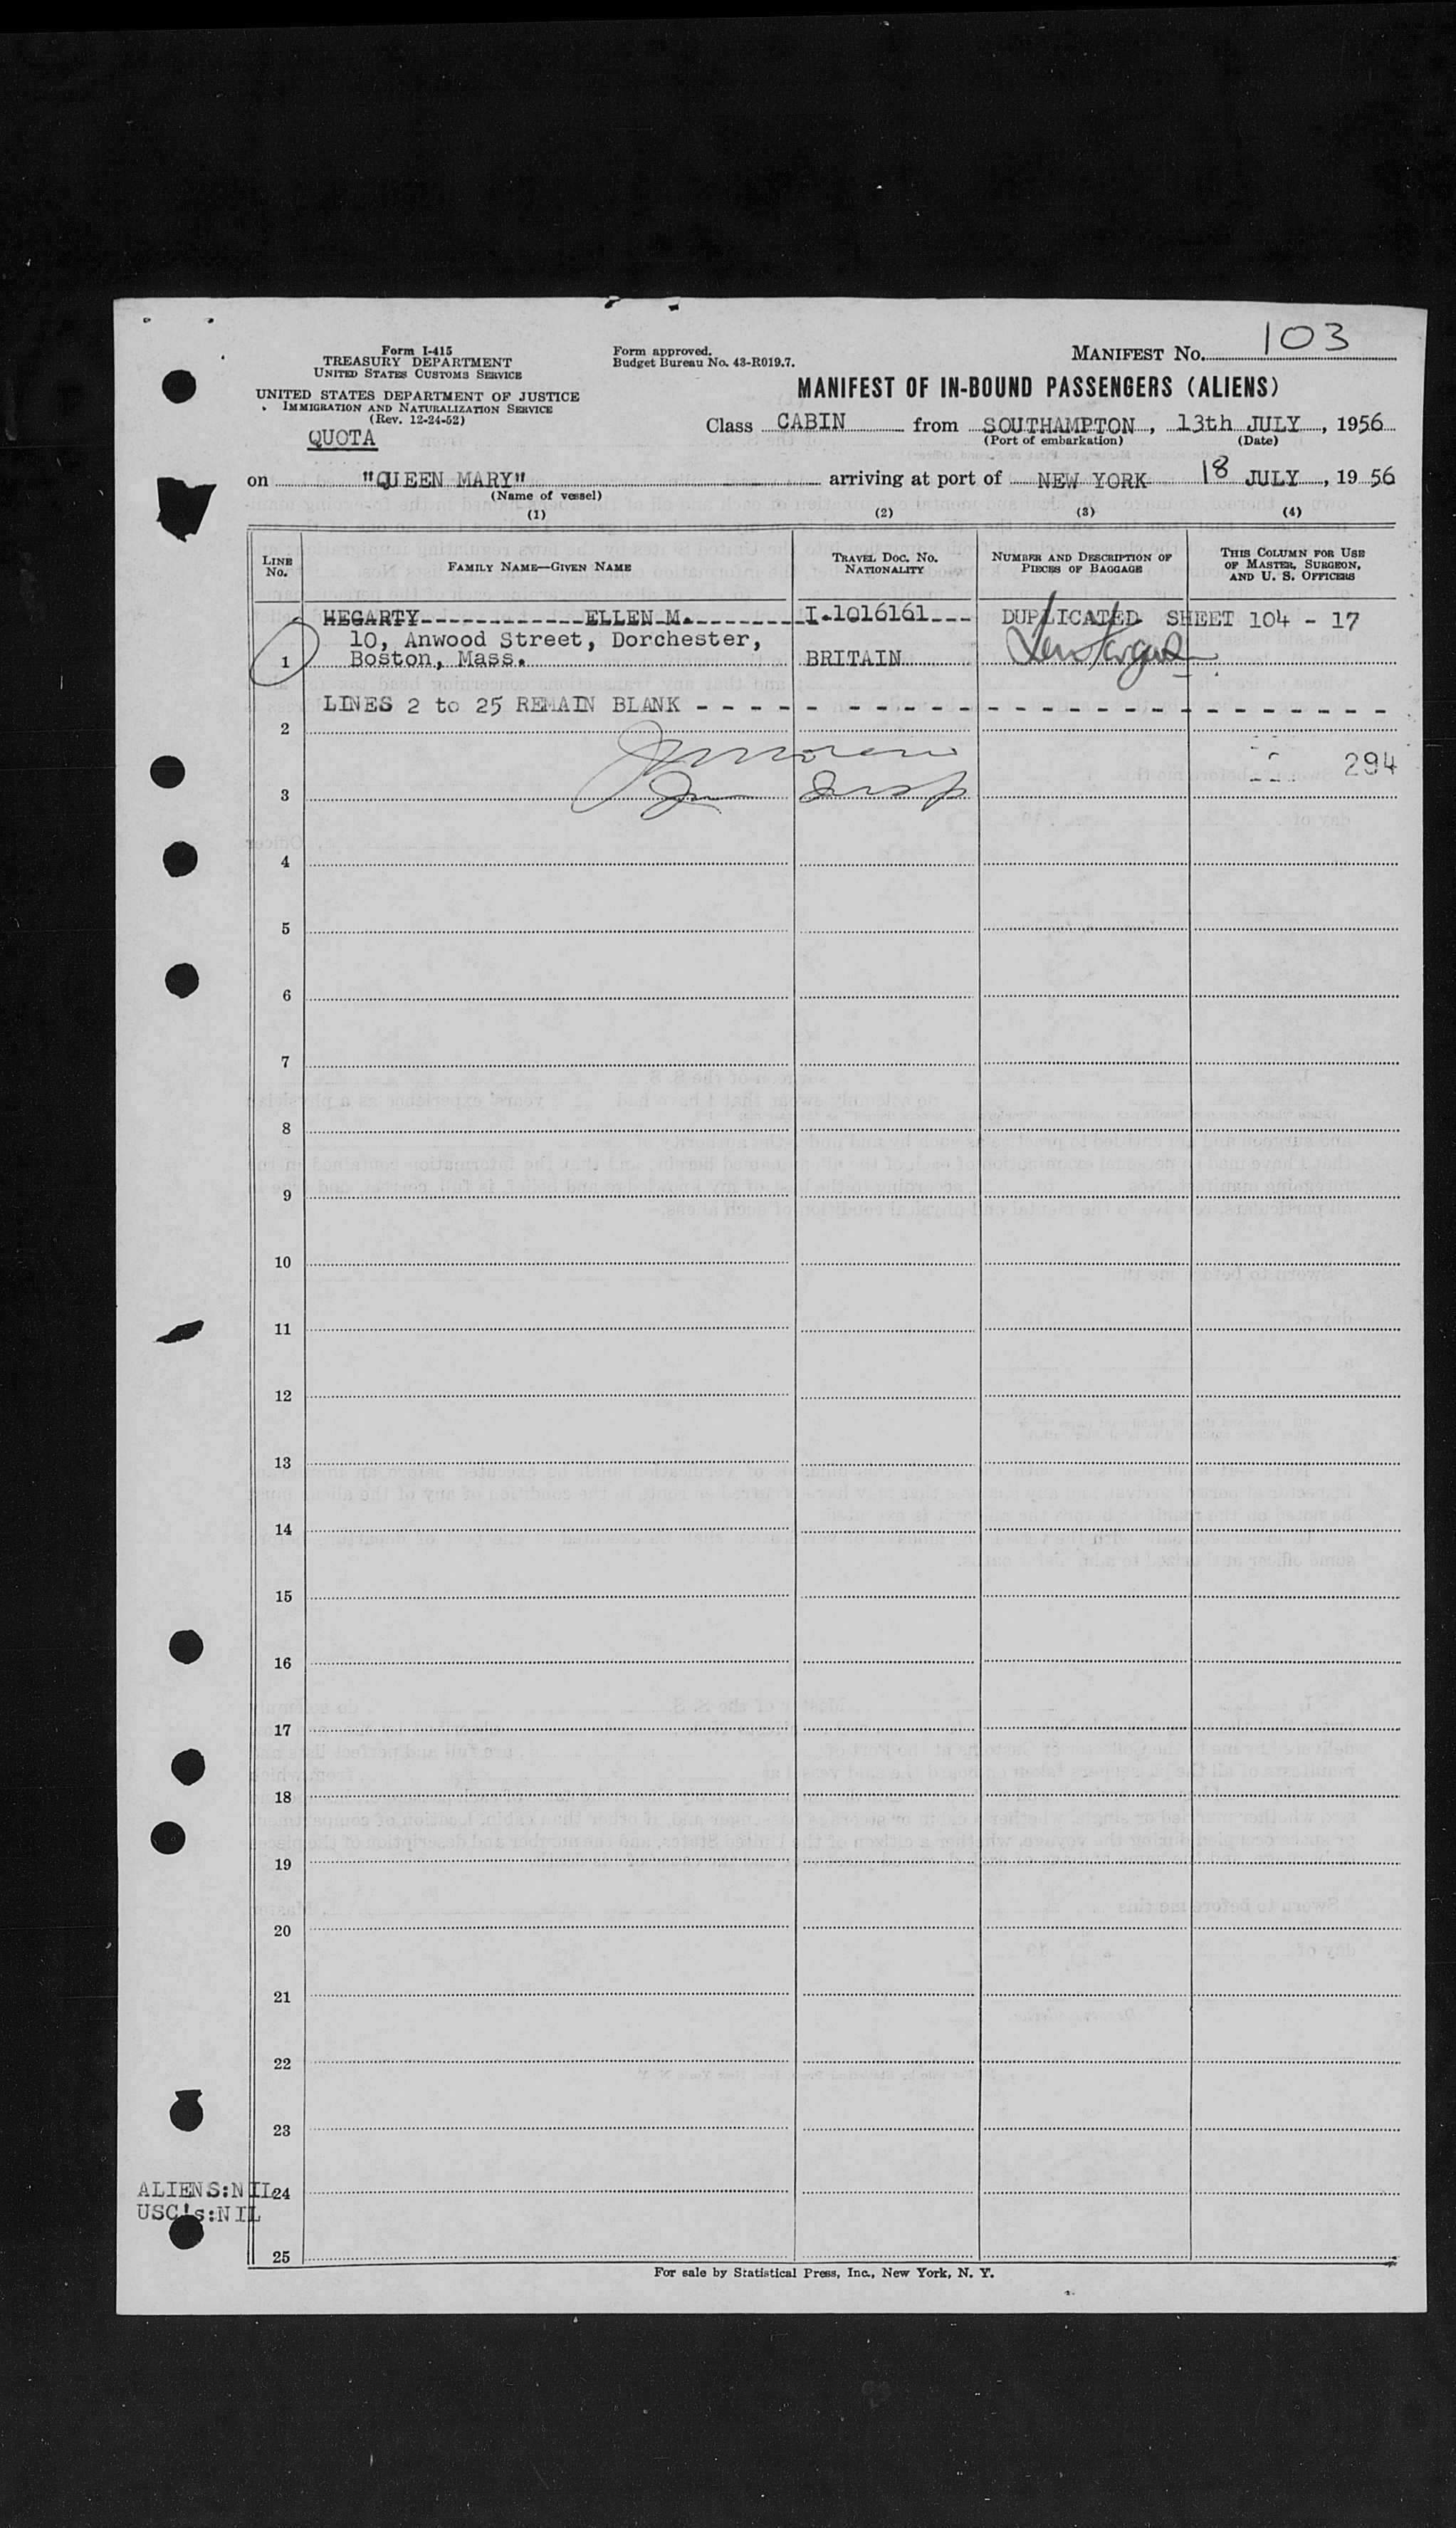 MANIFEST NO. 103
Form I-415
TREASURY DEPARTMENT
UNITED STATES CUSTOMS SERVICE
UNITED STATES DEPARTMENT OF JUSTICE
IMMIGRATION AND NATURALIZATION SERVICE
(Rev. 12-24-52)
QUOTA
Form approved.
Budget Bureau No. 43-R019.7.
MANIFEST OF IN-BOUND PASSENGERS (ALIENS)
Class CABIN from SOUTHAMPTON, 13th JULY, 1956
(Port of embarkation) (Date)
on "QUEEN MARY" arriving at port of NEW YORK 18 JULY, 1956
(Name of vessel)
(1) (2) (3) (4)
LINE NO.
FAMILY NAME—GIVEN NAME
TRAVEL DOC. NO. NATIONALITY
NUMBER AND DESCRIPTION OF PIECES OF BAGGAGE
THIS COLUMN FOR USE OF MASTER, SURGEON, AND U. S. OFFICERS
HEGARTY------------ELLEN M.---------I-1016161--- DUPLICATED SHEET 104 - 17
10, Anwood Street, Dorchester,
1 Boston, Mass. BRITAIN
LINES 2 to 25 REMAIN BLANK - - - - - - - - - - - - - - - - - - - - - - - -
2
294
3
4
5
6
7
8
9
10
11
12
13
14
15
16
17
18
19
20
21
22
23
ALIENS:NIL 24
USC's:NIL
25
For sale by Statistical Press, Inc., New York, N. Y.